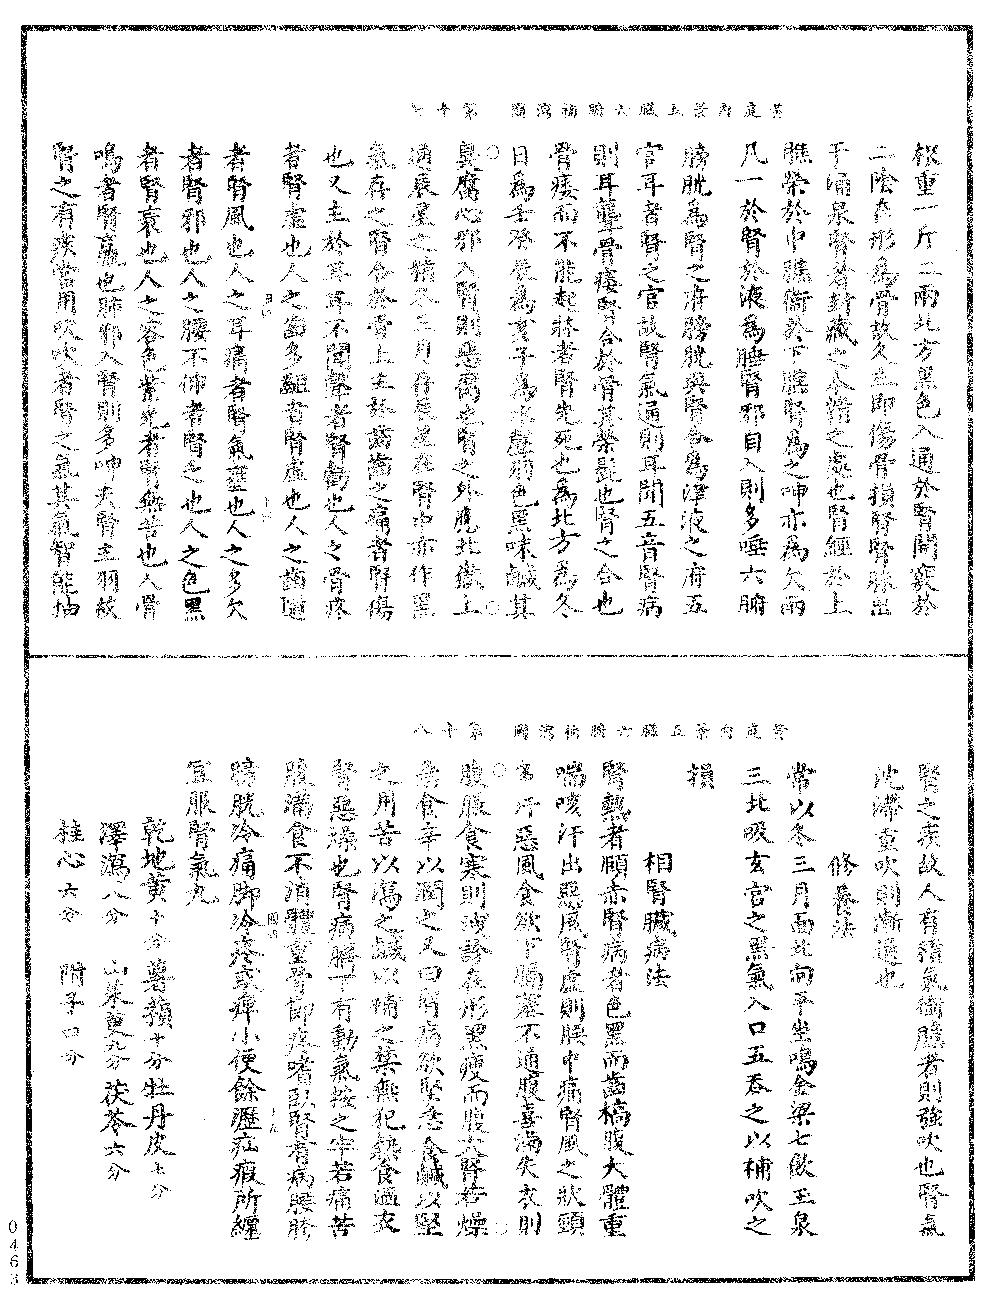 黃庭內景五臟六腑補瀉圖　第十七
松重一斤二兩北方黑色入通於腎開竅於
二陰在形為骨故久立即傷骨損腎腎脉出
于涌泉腎者封藏之本精之處也腎經於上
膲榮於中膲衛於下膲腎為之呻亦為欠雨
凡一於腎於液為唾腎邪自入則多唾六腑
膀胱為腎之府膀胱與腎合為津液之府五
官耳者腎之官故腎氣通則耳聞五音腎病
則耳聾骨痿腎合於骨其榮髭也腎之合也
骨痿而不能起牀者腎先死也為北方為冬
日為壬癸辰為亥子為水聲羽色黑味鹹其
臭腐心邪入腎則惡腐也腎之外應北嶽上
通辰星之精冬三月存辰星在腎中亦作黑
氣存之腎合於骨上主於齒齒之痛者腎傷
也又主於耳耳不聞聲者腎虧也人之骨疼
者腎虛也人之齒多齟者腎虛也人之齒墮
者腎風也人之耳痛者腎氣壅也人之多欠
者腎邪也人之腰不伸者腎之也人之色黑
者腎衰也人之容色紫光者腎無苦也人骨
鳴者腎羸也肺邪入腎則多呻夫腎主羽故
腎之有疾當用吹吹者腎之氣其氣智能抽
黃庭內景五臟六腑補瀉圖　第十八
腎之疾故人有積氣衝臆者則強吹也腎氣
沈滯重吹則漸通也
修養法
常以冬三月面北向平坐鳴金梁七飲玉泉
三北吸玄宮之黑氣入口五吞之以補吹之
損
相腎臟病法
腎熱者頤赤腎病者色黑而齒槁腹大體重
喘咳汗出惡風腎虛則腰中痛腎風之狀頸
多汗惡風食欲下膈塞不通腹喜滿失衣則
腹脹食寒則洩診在形黑瘦而腹大腎若燥
急食辛以潤之又曰腎病欲堅急食鹹以堅
之用苦以瀉之鹹以補之禁無犯熱食溫衣
腎惡燥也腎病臍下有動氣按之牢若痛苦
腹滿食不消體重骨節疼嗜臥腎有病腰胯
膀胱冷痛脚冷疼或痺小便餘瀝疝瘕所纏
宜服腎氣丸
乾地黃十分薯蕷十分牡丹皮六分
澤瀉八分　山茱萸九分茯苓六分
桂心六分　附子口分
0463